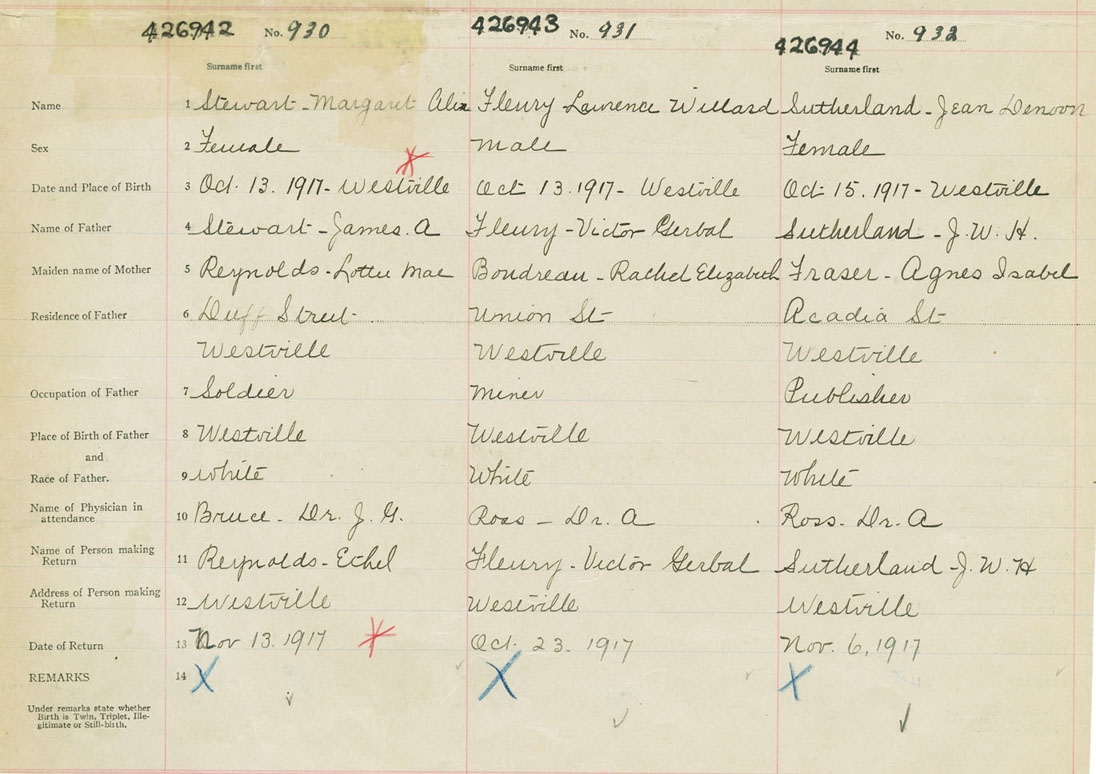 426942 No. 930 426943 No. 931 426944 No. 932
Surname first Surname first Surname first
Name 1 Stewart - Margaret Alix Fleury Lawrence Willard Sutherland - Jean Denoon
Sex 2 Female Male Female
Date and Place of Birth 3 Oct. 13. 1917 - Westville Oct 13. 1917 - Westville Oct 15. 1917 - Westville
Name of Father 4 Stewart - James. A Fleury - Victor Gerbal Sutherland - J. W. H.
Maiden name of Mother 5 Reynolds - Lottie Mae Boudreau - Rachel Elizabeth Fraser - Agnes Isabel
Residence of Father 6 Duff Street Union St Acadia St
Westville Westville Westville
Occupation of Father 7 Soldier Miner Publisher
Place of Birth of Father 8 Westville Westville Westville
and
Race of Father. 9 White White White
Name of Physician in
attendance 10 Bruce - Dr. J. G. Ross - Dr. A Ross - Dr. A
Name of Person making
Return 11 Reynolds - Ethel Fleury - Victor Gerbal Sutherland - J. W. H
Address of Person making
Return 12 Westville Westville Westville
Date of Return 13 Nov 13. 1917 Oct. 23. 1917 Nov. 6, 1917
REMARKS 14 X X X
Under remarks state whether
Birth is Twin, Triplet, Ille-
gitimate or Still-birth.